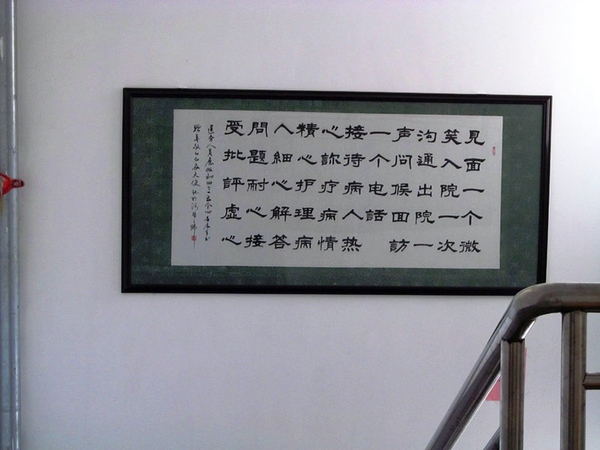 見面一个微
笑入院一次
沟通出院一
声问候回訪
一个电話
接待病人热
心診疗病情
精心护理病
人細心解答
問題耐心接
受批評虚心